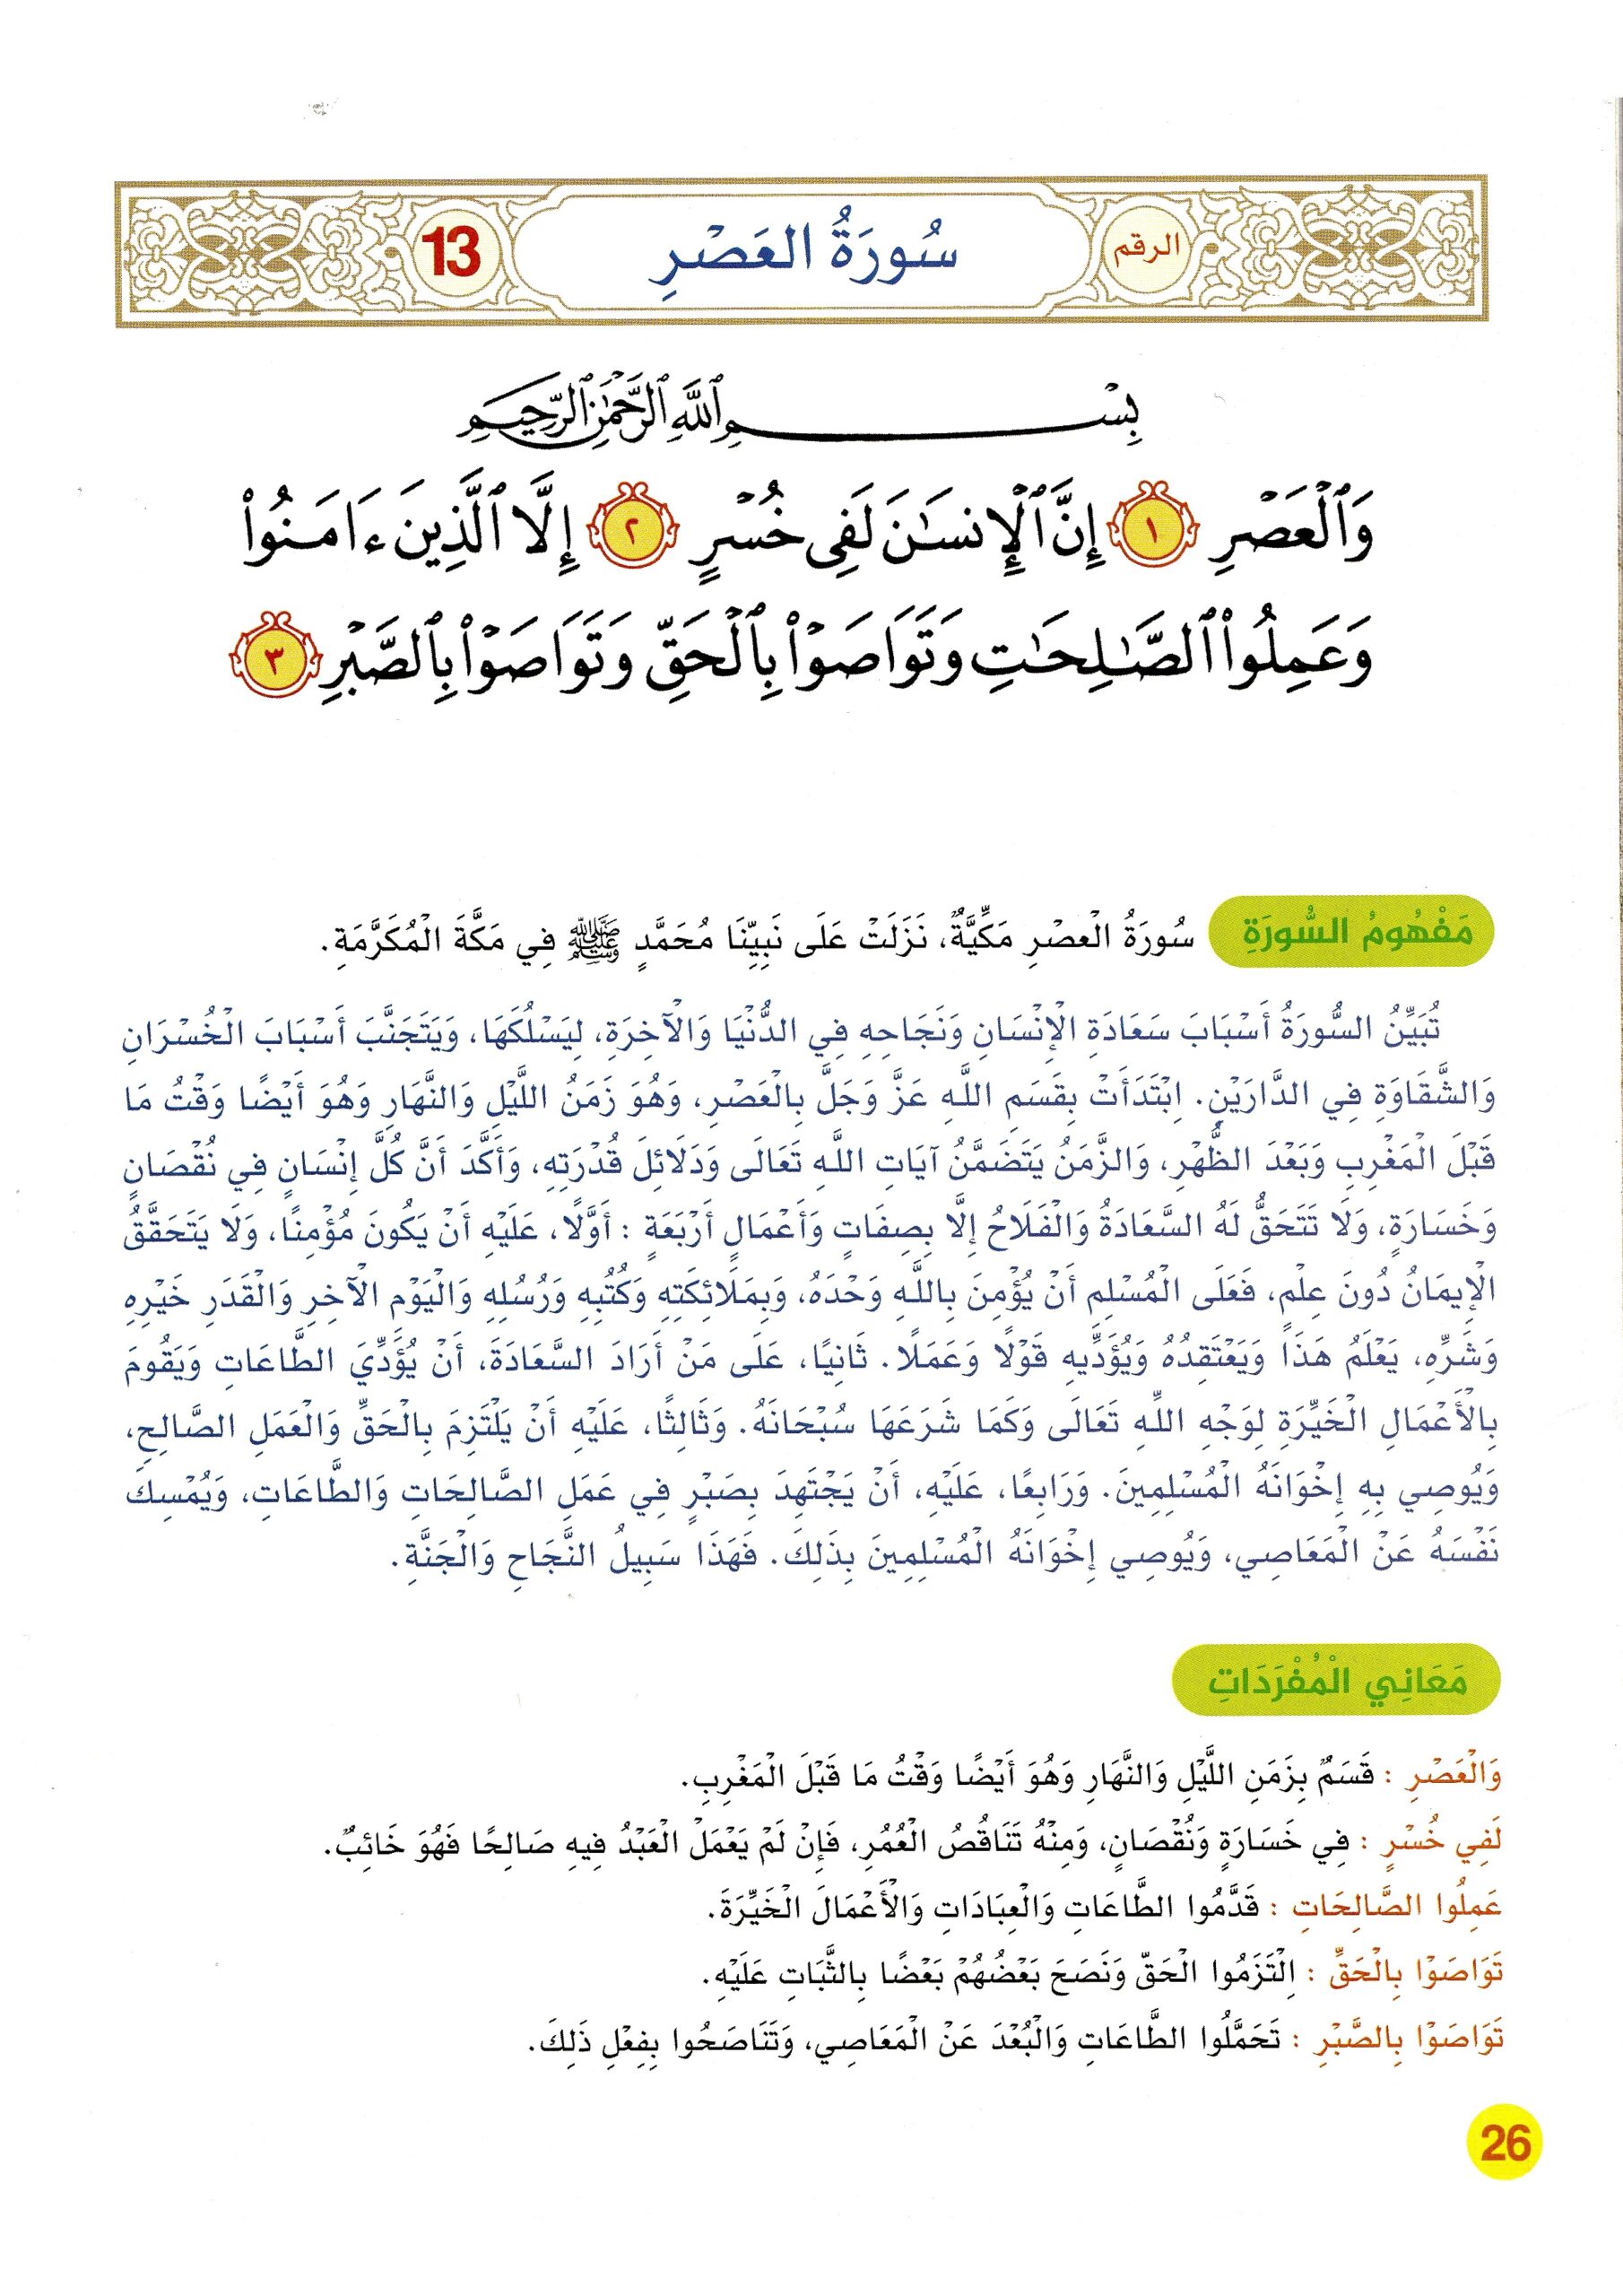 الرقم سُورَةُ العَصْرِ 13
بِسْمِ ٱللَّهِ ٱلرَّحْمَٰنِ ٱلرَّحِيمِ
وَٱلْعَصْرِ ١ إِنَّ ٱلْإِنسَٰنَ لَفِى خُسْرٍ ٢ إِلَّا ٱلَّذِينَ ءَامَنُوا۟
وَعَمِلُوا۟ ٱلصَّٰلِحَٰتِ وَتَوَاصَوْا۟ بِٱلْحَقِّ وَتَوَاصَوْا۟ بِٱلصَّبْرِ ٣
مَفْهُومُ السُّورَةِ سُورَةُ الْعصْرِ مَكِّيَّةٌ، نَزَلَتْ عَلَى نَبِيِّنَا مُحَمَّدٍ ﷺ فِي مَكَّةَ الْمُكَرَّمَةِ.
تُبَيِّنُ السُّورَةُ أَسْبَابَ سَعَادَةِ الإِنْسَانِ وَنَجَاحِهِ فِي الدُّنْيَا وَالْآخِرَةِ، لِيَسْلُكَهَا، وَيَتَجَنَّبَ أَسْبَابَ الْخُسْرَانِ
وَالشَّقَاوَةِ فِي الدَّارَيْنِ. ابْتَدَأَتْ بِقَسَمِ اللَّهِ عَزَّ وَجَلَّ بِالْعَصْرِ، وَهُوَ زَمَنُ اللَّيْلِ وَالنَّهَارِ وَهُوَ أَيْضًا وَقْتُ مَا
قَبْلَ الْمَغْرِبِ وَبَعْدَ الظُّهْرِ، وَالزَّمَنُ يَتَضَمَّنُ آيَاتِ اللَّهِ تَعَالَى وَدَلَائِلَ قُدْرَتِهِ، وَأَكَّدَ أَنَّ كُلَّ إِنْسَانٍ فِي نُقْصَانٍ
وَخَسَارَةٍ، وَلَا تَتَحَقُّ لَهُ السَّعَادَةُ وَالْفَلَاحُ إِلَّا بِصِفَاتٍ وَأَعْمَالٍ أَرْبَعَةٍ : أَوَّلًا، عَلَيْهِ أَنْ يَكُونَ مُؤْمِنًا، وَلَا يَتَحَقَّقُ
الْإِيمَانُ دُونَ عِلْمٍ، فَعَلَى الْمُسْلِمِ أَنْ يُؤْمِنَ بِاللَّهِ وَحْدَهُ، وَبِمَلَائِكَتِهِ وَكُتُبِهِ وَرُسُلِهِ وَالْيَوْمِ الْآخِرِ وَالْقَدَرِ خَيْرِهِ
وَشَرِّهِ، يَعْلَمُ هَذَا وَيَعْتَقِدُهُ وَيُؤَدِّيهِ قَوْلًا وَعَمَلًا. ثَانِيًا، عَلَى مَنْ أَرَادَ السَّعَادَةَ، أَنْ يُؤَدِّيَ الطَّاعَاتِ وَيَقُومَ
بِالْأَعْمَالِ الْخَيِّرَةِ لِوَجْهِ اللَّهِ تَعَالَى وَكَمَا شَرَعَهَا سُبْحَانَهُ. وَثَالِثًا، عَلَيْهِ أَنْ يَلْتَزِمَ بِالْحَقِّ وَالْعَمَلِ الصَّالِحِ،
وَيُوصِي بِهِ إِخْوَانَهُ الْمُسْلِمِينَ. وَرَابِعًا، عَلَيْهِ، أَنْ يَجْتَهِدَ بِصَبْرٍ فِي عَمَلِ الصَّالِحَاتِ وَالطَّاعَاتِ، وَيُمْسِكَ
نَفْسَهُ عَنْ الْمَعَاصِي، وَيُوصِي إِخْوَانَهُ الْمُسْلِمِينَ بِذَلِكَ. فَهَذَا سَبِيلُ النَّجَاحِ وَالْجَنَّةِ.
مَعَانِي الْمُفْرَدَاتِ
وَالْعَصْرِ : قَسَمٌ بِزَمَنِ اللَّيْلِ وَالنَّهَارِ وَهُوَ أَيْضًا وَقْتُ مَا قَبْلَ الْمَغْرِبِ.
لَفِي خُسْرٍ : فِي خَسَارَةٍ وَنُقْصَانٍ، وَمِنْهُ تَنَاقُصُ الْعُمُرِ، فَإِنْ لَمْ يَعْمَلْ الْعَبْدُ فِيهِ صَالِحًا فَهُوَ خَائِبٌ.
عَمِلُوا الصَّالِحَاتِ : قَدَّمُوا الطَّاعَاتِ وَالْعِبَادَاتِ وَالْأَعْمَالَ الْخَيِّرَةَ.
تَوَاصَوْا بِالْحَقِّ : اِلْتَزَمُوا الْحَقّ وَنَصَحَ بَعْضُهُمْ بَعْضًا بِالثَّبَاتِ عَلَيْهِ.
تَوَاصَوْا بِالصَّبْرِ : تَحَمَّلُوا الطَّاعَاتِ وَالْبُعْدَ عَنْ الْمَعَاصِي، وَتَنَاصَحُوا بِفِعْلِ ذَلِكَ.
26